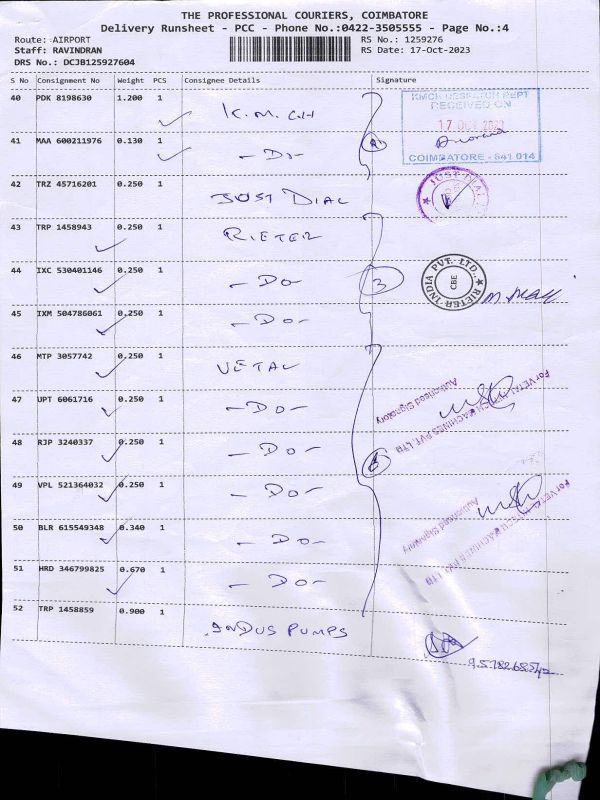 THE PROFESSIONAL COURIERS, COIMBATORE
Delivery Runsheet - PCC - Phone No.:0422-3505555 - Page No.:4
Route: AIRPORT RS No.: 1259276
Staff: RAVINDRAN RS Date: 17-Oct-2023
DRS No.: DCJB125927604
S No Consignment No Weight PCS Consignee Details Signature
40 PDK 8198630 1.200 1 K.M.CH
KMCH DESPATCH DEPT
RECEIVED ON
17 OCT 2023
COIMBATORE - 641 014
41 MAA 600211976 0.130 1 - Do -
42 TRZ 45716201 0.250 1 JUST DIAL
JUST DIAL
43 TRP 1458943 0.250 1 RIETER
44 IXC 530401146 0.250 1 - Do - 3
RIETER INDIA PVT. LTD. CBE
45 IXM 504786061 0.250 1 - Do -
46 MTP 3057742 0.250 1 VETAL
For VETAL MACHINES PVT. LTD
Authorised Signatory
47 UPT 6061716 0.250 1 - Do -
48 RJP 3240337 0.250 1 - Do - 6
49 VPL 521364032 0.250 1 - Do -
50 BLR 615549348 0.340 1 - Do -
Authorised Signatory
51 HRD 346799825 0.670 1 - Do -
52 TRP 1458859 0.900 1 INDUS PUMPS